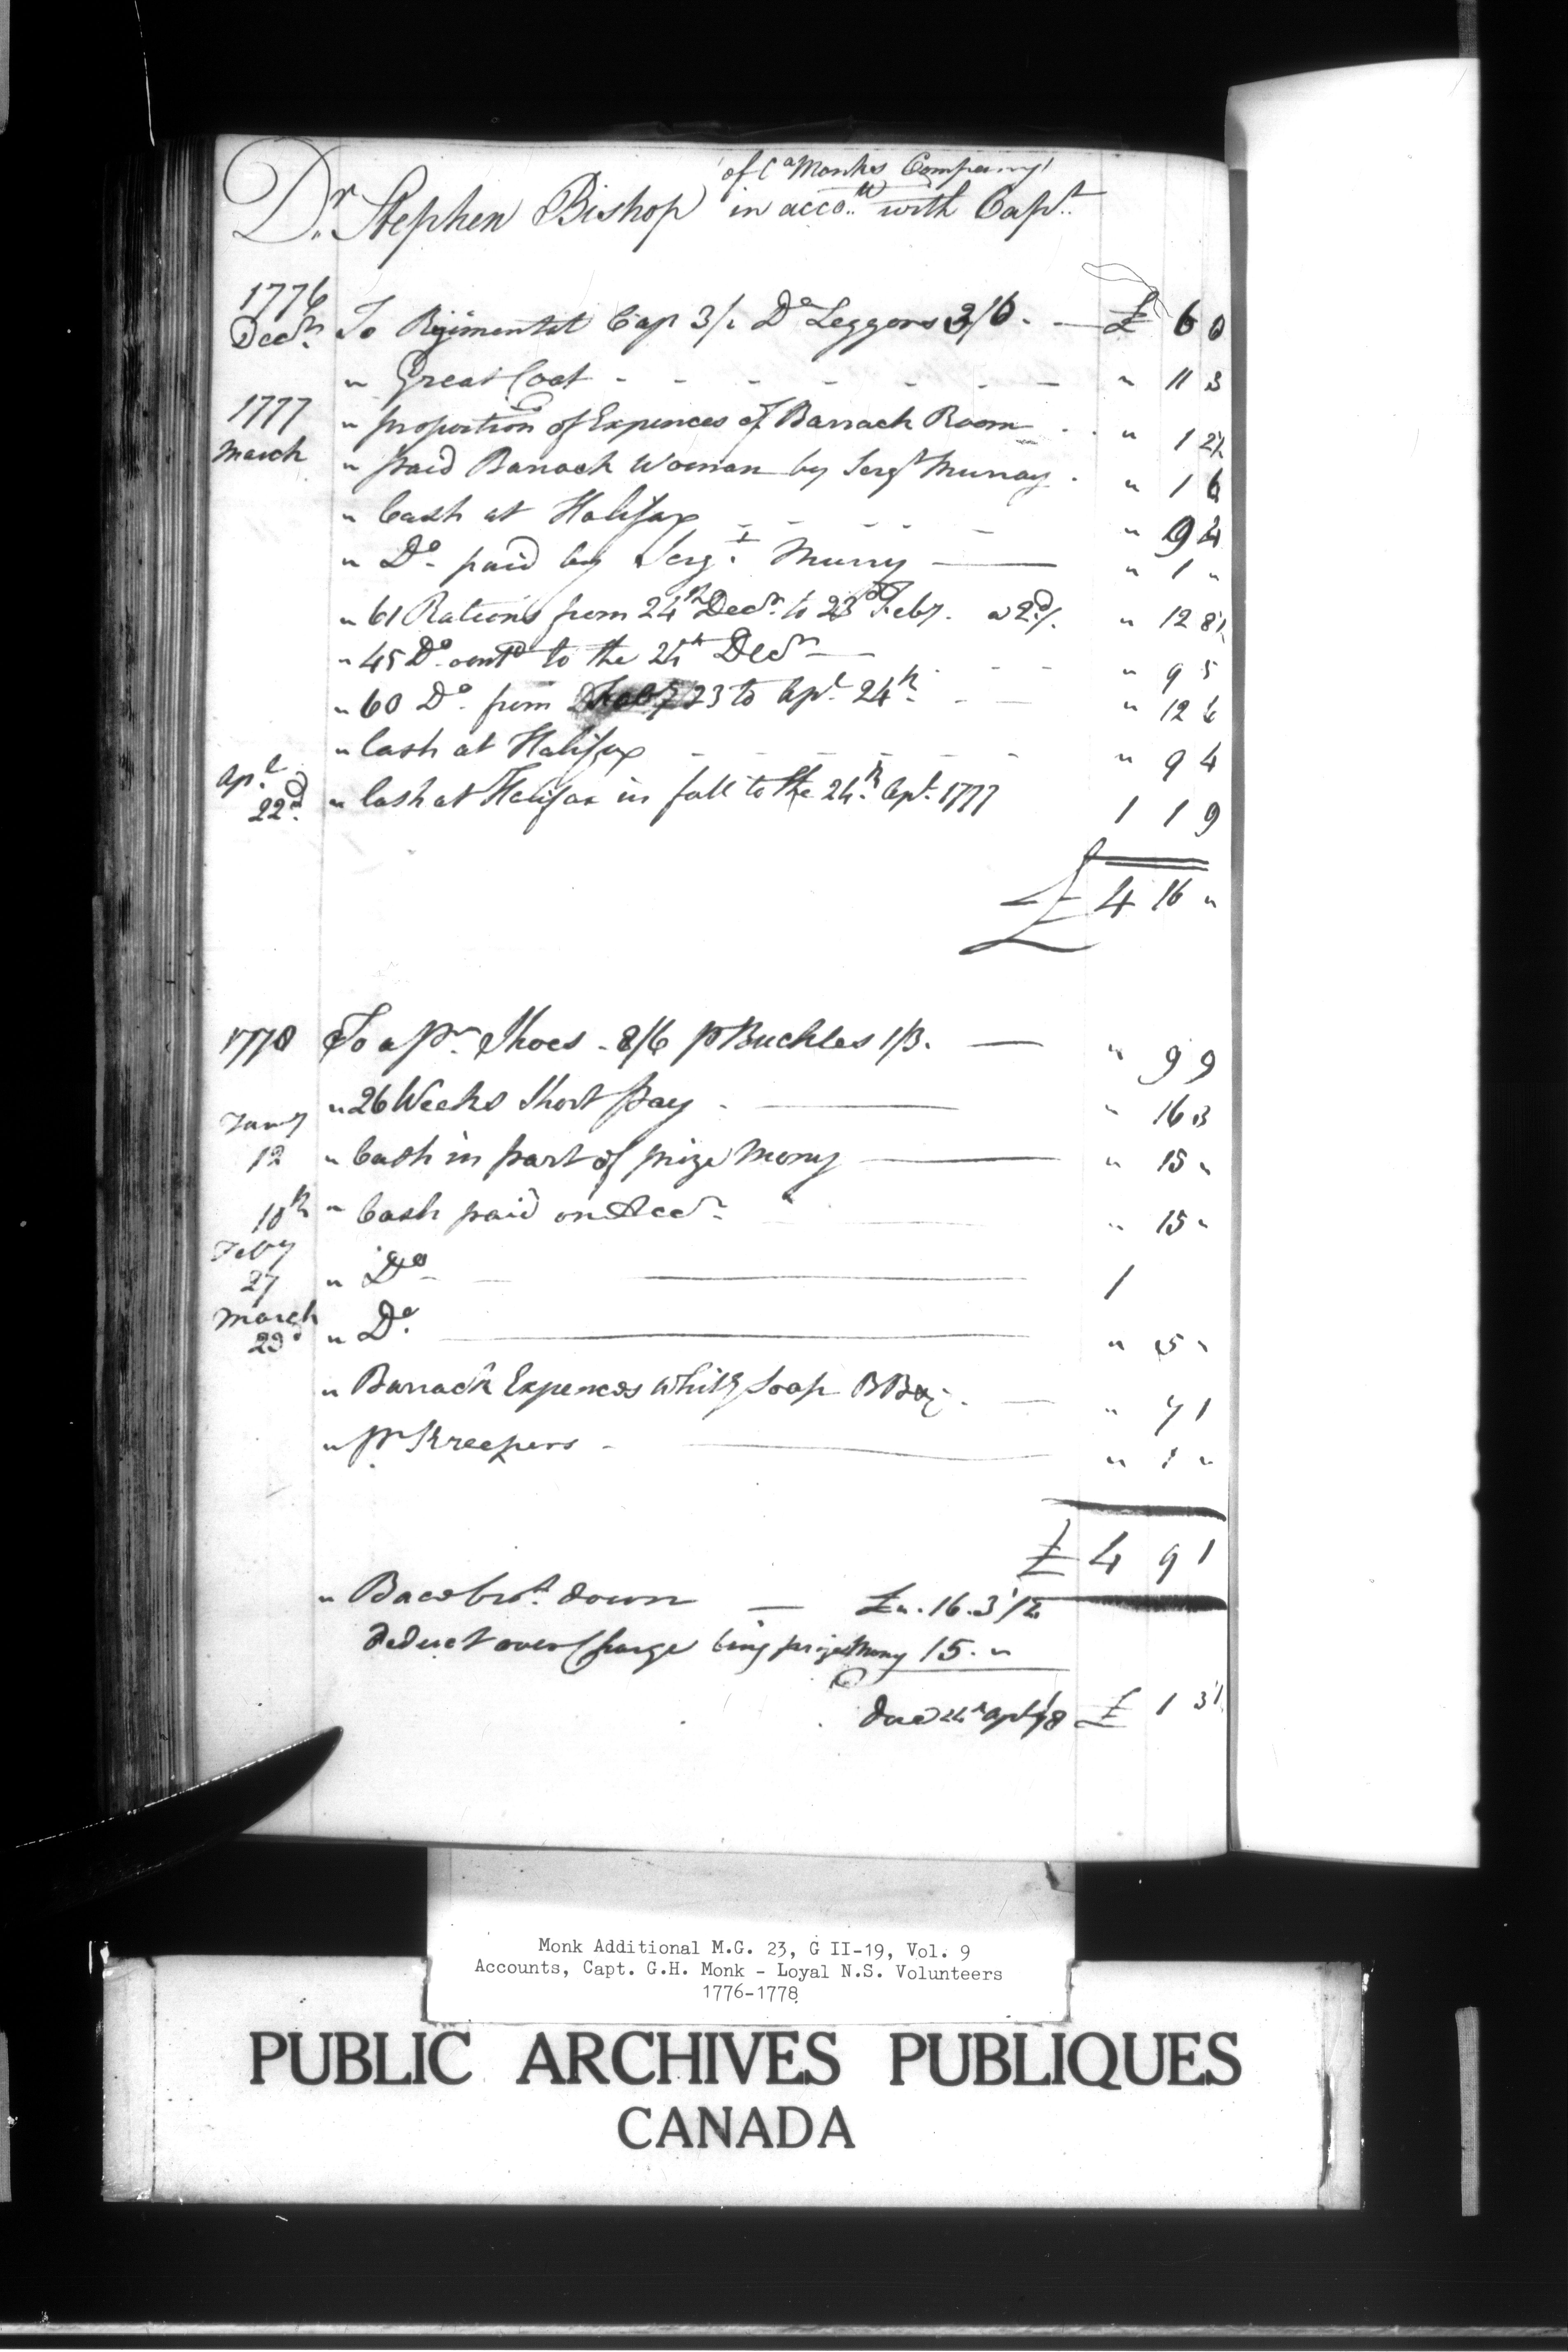 of Ca Monks Company
Dr Stephen Bishop in acco.tt with Capt
1776
Decr To Regimental Cap 3/. Do Leggons 3/6. £ 6 6
" Great Coat - - - - - - " 11 3
1777 " proportion of Expences of Barrack Room . . " 1 2½
March " paid Barrack Woman by Sergt Murray . " 1 6
" Cash at Halifax - - - - - " 9 4
" Do paid by Sergt Murry " 1 "
" 61 Rations from 24th Decr to 23d Feby. a 2d½. " 12 8½
" 45 Do to the 24th Decr " 9 5
" 60 Do from 23 to Apl 24th " 12 6
" Cash at Halifax - - - - - " 9 4
Apl 22d " Cash at Halifax in full to the 24th Apl 1777 1 1 9
£ 4 16 "
1778 To a pr Shoes - 8/6 pr Buckles 1/3. " 9 9
" 26 Weeks Short pay - " 16 3
Jany
12 " Cash in part of prize Mony " 15 "
18th " Cash paid on Acct " 15 "
Feby
27 " Do 1
March
23d " Do " 5 "
" Barrack Expences Whitg Soap B Bag. " 7 1
" pr Kreepers - " 1 "
£ 4 9 1
" Bace brot down £ ". 16. 3 1/2
deduct over Charge being prize Mony 15. "
due 24th Apl 78 £ 1 3½
Monk Additional M.G. 23, G II-19, Vol. 9
Accounts, Capt. G.H. Monk - Loyal N.S. Volunteers
1776-1778
PUBLIC ARCHIVES PUBLIQUES
CANADA